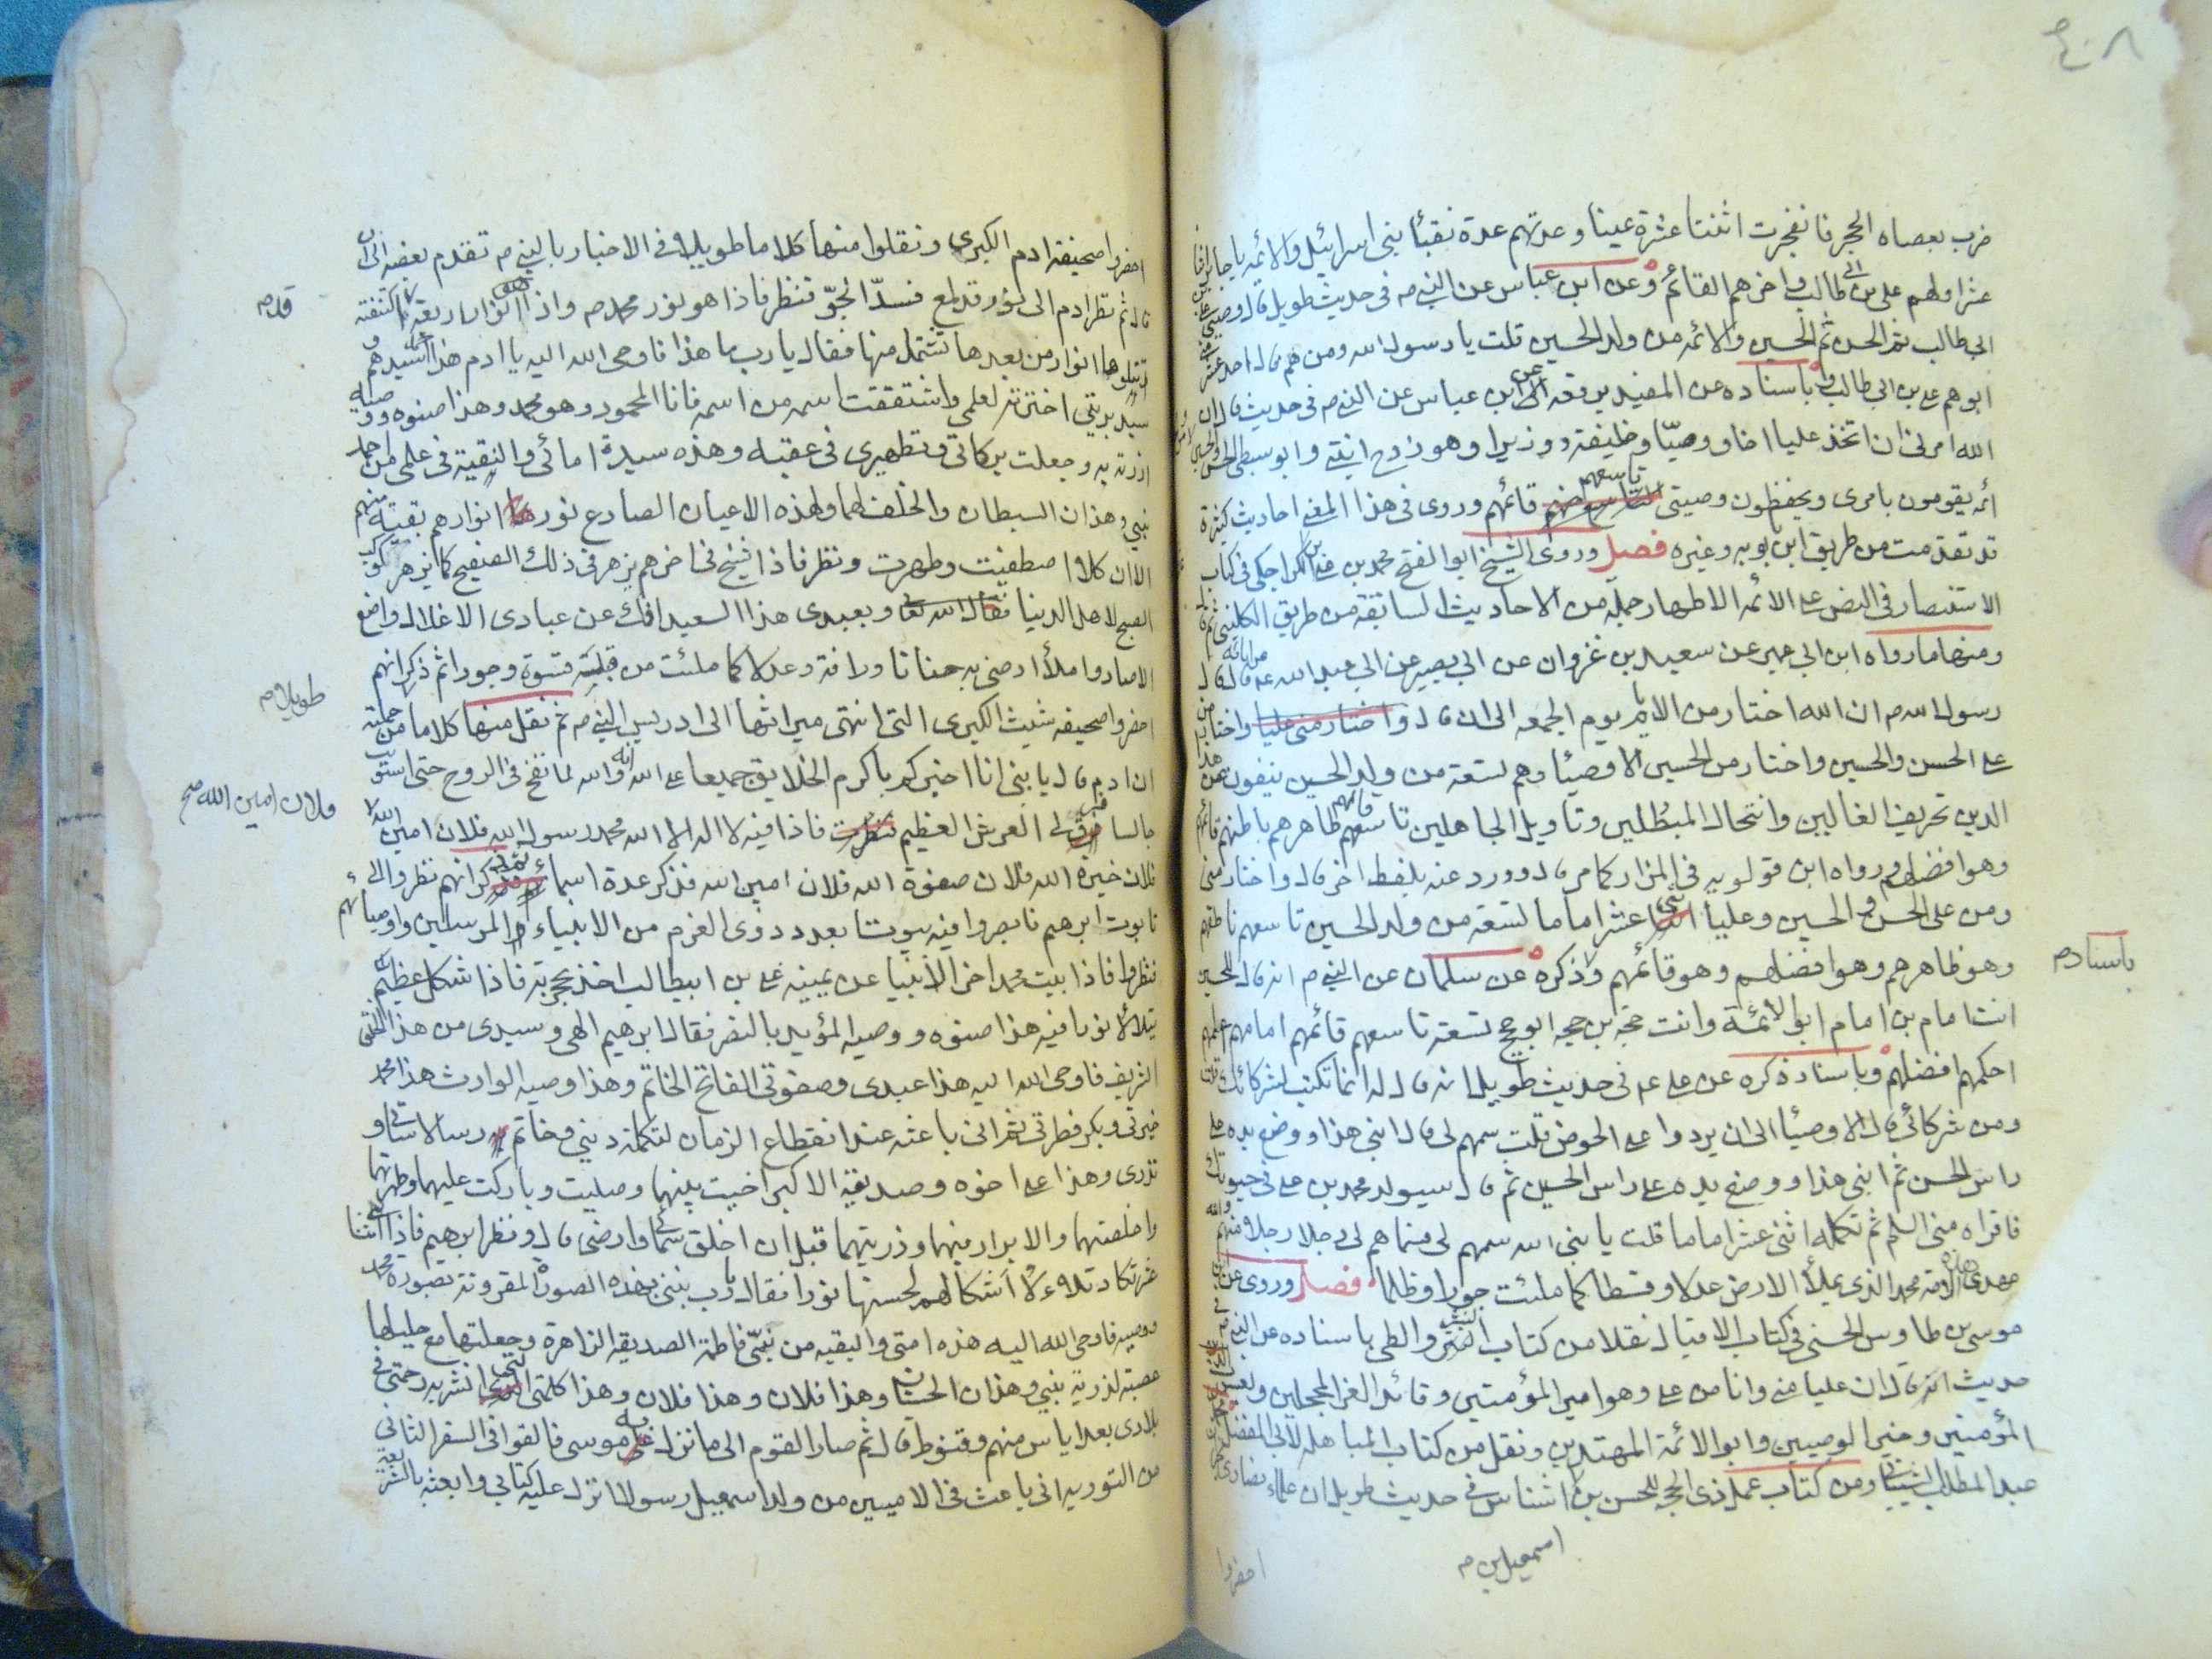 ضرب بعصاه الحجر فانفجرت اثنتا عشرة عينا وعدتهم عدة نقبأ بنى اسرائيل والائمه يا جابر اثنا
عشر اولهم على بن ابى طالب واخرهم القائم وعن ابن عباس عن النبى ص فى حديث طويل قال وصيى على بن
ابى طالب ثم الحسن ثم الحسين والائمه من ولد الحسين قلت يا رسول الله ومن هم قال احد عشر
ابوهم على بن ابى طالب وباسناده عن المفيد يرفعه الى ابن عباس عن النبى ص فى حديث قال ان
الله امرنى ان اتخذ عليا اخا ووصيّا وخليفة ووزيرا وهو زوج ابنتى وابو سبطى الحسن والحسين
ائمه يقومون بامرى ويحفظون وصيتى تاسعهم قائمهم وروى فى هذا المعنى احاديث كثيرة
قد تقدمت من طريق ابن بابويه وغيره فصل وروى الشيخ ابو الفتح محمد بن على الكراجكى فى كتاب
الاستنصار فى النص على الائمه الاطهار جمله من الاحاديث السابقة من طريق الكلينى ثم قال
ومنها ما رواه ابن ابى عمير عن سعيد بن غزوان عن ابى بصير عن ابى عبد الله ع عن ابائه قال قال
رسول الله ص ان الله اختار من الايام يوم الجمعه الى ان قال واختار منى عليا واختار من
على الحسن والحسين واختار من الحسين الاوصيأ وهم تسعة من ولد الحسين ينفون عن هذا
الدين تحريف الغالين وانتحال المبطلين وتاويل الجاهلين تاسعهم قائمهم ظاهرهم باطنهم
وهو افضلهم ورواه ابن قولويه فى المزار كما مر قال وورد عنه بلفظ اخر قال واختار منى
ومن على الحسن والحسين وعليا اثنى عشر اماما تسعة من ولد الحسين تاسعهم ناطقهم
وهو ظاهرهم وهو افضلهم وهو قائمهم وذكره عن سلمان عن النبى ص انه قال للحسين
باسناده
انت امام بن امام ابو الائمة وانت حجة بن حجه ابو حجج تسعة تاسعهم قائمهم امامهم اعلمهم
احكمهم افضلهم وباسناد ذكره عن على ع فى حديث طويل انه قال له انما تكتب لشركائك قلت
ومن شركائى قال الاوصيأ الى ان يردوا على الحوض قلت سمهم لى قال ابنى هذا ووضع يده على
راس الحسن ثم ابنى هذا ووضع يده على راس الحسين ثم قال سيولد محمد بن على فى حيوتك
فاقراه منى السلم ثم تكمله اثنى عشر اماما قلت يا نبى الله سمهم لى فسماهم لى رجلا رجلا منهم والله
مهدى هذه الامة محمد الذى يملأ الارض عدلا وقسطا كما ملئت جورا وظلما فصل وروى على بن
موسى بن طاوس الحسنى فى كتاب الاقبال نقلا من كتاب النشر والطى باسناده عن النبى ص فى
حديث انه قال ان عليا منى وانا من على وهو امير المؤمنين وقائد الغر المحجلين ويعسوب
المؤمنين وخير الوصيين وابو الائمة المهتدين ونقل من كتاب المباهلة لابى المفضل
عبد المطلب الشيبانى ومن كتاب عمل ذى الحجه للحسن بن اشناس فى حديث طويل ان علماء نصارى
اسمعيل بن ص
احضروا
احضروا صحيفة ادم الكبرى ونقلوا منها كلاما طويلا فى الاخبار بالنبى ص تقدم بعضه الى ان
قال ثم نظر ادم الى نور قد لمع فسدّ الجوّ فنظر فاذا هو نور محمد ص واذا انوار اربعة اكتنفته
قد ص
تتلوها انوار من بعدها تشتمل منها فقال يا رب ما هذا فاوحى الله اليه يا ادم هذا سيدهم
سيد بريتى اخترته لعلمى واشتققت اسمه من اسمى فانا المحمود وهو محمد وهذا صنوه ووصيه
ازرته به وجعلت بركاتى وتطهيرى فى عقبه وهذه سيدة امائى والبقية فى علمى من احمد
نبيى وهذان السبطان والخلف لهما ولهذه الاعيان الصادع نورها انوارهم بقية منهم
الا ان كلا اصطفيت وطهرت ونظر فاذا شبح فى اخرهم يزهر فى ذلك الصفيح كما يزهر كوكب
الصبح لاهل الدنيا فقال الله تعا وبعبدى هذا السعيد افك عن عبادى الاغلال واضع
الاصار واملأ ارضى به حنانا ورافة وعدلا كما ملئت من قبله قسوة وجورا ثم ذكر انهم
احضروا صحيفه شيث الكبرى التى انتهى ميراثها الى ادريس النبى ص ثم نقل منها كلاما من جملته
طويلا ص
ان ادم قال يا بنى انا اخبركم باكرم الخلايق جميعا على الله انه والله لما نفخ فى الروح حتى استويت
جالسا فبرق لى العرش العظيم فنظرت فاذا فيه لا اله الا الله محمد رسول الله فلان امين الله
فلان امين الله صح
فلان خيرة الله فلان صفوة الله فلان امين الله فذكر عدة اسماء ثم ذكر انهم نظروا الى
تابوت ابرهيم فابصروا فيه بيوتا بعدد ذوى العزم من الانبياء المرسلين واوصيائهم
فنظروا فاذا بيت محمد اخر الانبيا عن يمينه على بن ابيطالب اخذ بحجزته فاذا شكل عظيم
يتلالأ نورا فيه هذا صنوه ووصيه المؤيد بالنصر فقال ابرهيم الهى وسيدى من هذا الخلق
الشريف فاوحى الله اليه هذا عبدى وصفوتى الفاتح الخاتم وهذا وصيه الوارث هذا محمد
خيرتى وبكر فطرتى ثم انى باعثه عند انقطاع الزمان لتكملة دينى وخاتم به رسالاتى و
نذرى وهذا على اخوه وصديقه الاكبر اخيت بينهما وصليت وباركت عليهما وطهرتهما
واخلصتهما والابرار منهما وذريتهما قبل ان اخلق سمائى وارضى قال ونظر ابرهيم فاذا اثنا
عشر تكاد تلالأ اشكالهم لحسنها نورا فقال رب نبئنى بهذه الصور المقرونة بصورة محمد
ووصيه فاوحى الله اليه هذه امتى والبقيه من نبيّى فاطمة الصديقه الزاهرة وجعلتها مع حليلها
عصبة لذرية نبيى وهذان الحسنان وهذا فلان وهذا فلان وهذا كلمتى التى انشر به رحمتى فى
بلادى بعد اياس منهم وقنوط قال ثم صار القوم الى ما نزل على موسى فالفوا فى السفر الثانى
من التوريه انى باعث فى الاميين من ولد اسمعيل رسولا انزل عليه كتابى وابعثه بالشريعة